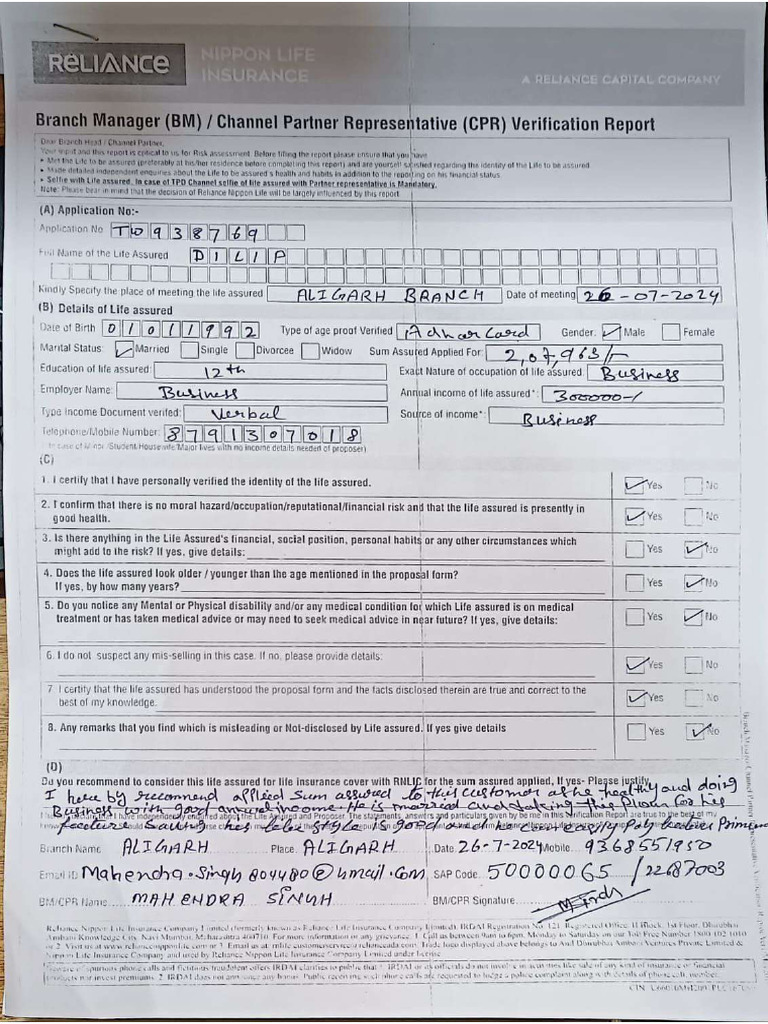 RELIANCE
NIPPON LIFE
INSURANCE
A RELIANCE CAPITAL COMPANY
Branch Manager (BM) / Channel Partner Representative (CPR) Verification Report
Dear Branch Head / Channel Partner,
Your input and this report is critical to us for Risk assessment. Before filling the report please ensure that you have
• Met the Life to be assured (preferably at his/her residence before completing this report) and are yourself satisfied regarding the identity of the Life to be assured
• Made detailed independent enquiries about the Life to be assured's health and habits in addition to the reporting on his financial status.
• Selfie with Life assured. In case of TPD Channel selfie of life assured with Partner representative is Mandatory.
Note: Please bear in mind that the decision of Reliance Nippon Life will be largely influenced by this report
(A) Application No:-
Application No TW938769
Full Name of the Life Assured DILIP
Kindly Specify the place of meeting the life assured ALIGARH BRANCH Date of meeting 26-07-2024
(B) Details of Life assured
Date of Birth 01011992 Type of age proof Verified Adharcard Gender: Male Female
Marital Status: Married Single Divorcee Widow Sum Assured Applied For: 2,07,963/-
Education of life assured: 12th Exact Nature of occupation of life assured: Business
Employer Name: Business Annual income of life assured*: 300000-/
Type Income Document verifed: Verbal Source of income*: Business
Telephone/Mobile Number: 8791307018
(In case of Minor /Student/Housewife/Major lives with no income details needed of proposer)
(C)
1. I certify that I have personally verified the identity of the life assured. Yes No
2. I confirm that there is no moral hazard/occupation/reputational/financial risk and that the life assured is presently in
good health. Yes No
3. Is there anything in the Life Assured's financial, social position, personal habits or any other circumstances which
might add to the risk? If yes, give details: Yes No
4. Does the life assured look older / younger than the age mentioned in the proposal form?
If yes, by how many years? Yes No
5. Do you notice any Mental or Physical disability and/or any medical condition for which Life assured is on medical
treatment or has taken medical advice or may need to seek medical advice in near future? If yes, give details: Yes No
6. I do not suspect any mis-selling in this case. If no, please provide details: Yes No
7 I certify that the life assured has understood the proposal form and the facts disclosed therein are true and correct to the
best of my knowledge. Yes No
8. Any remarks that you find which is misleading or Not-disclosed by Life assured. If yes give details Yes No
(D)
Do you recommend to consider this life assured for life insurance cover with RNLIC for the sum assured applied, If yes- Please justify
I here by recommend applied Sum assured to this customer as he healthy and doing
Business with good annual income. He is married and taking this Plan for his
Saving his life style is good and he can easily Pay
Branch Name ALIGARH Place ALIGARH Date 26-7-2024 Mobile 9368551950
Email ID Mahendra.Singh804480@gmail.Com SAP Code 50000065 /22687003
BM/CPR Name MAHENDRA SINGH BM/CPR Signature
Reliance Nippon Life Insurance Company Limited (formerly known as Reliance Life Insurance Company Limited). IRDAI Registration No: 121. Registered Office: H Block, 1st Floor, Dhirubhai
Ambani Knowledge City, Navi Mumbai, Maharashtra 400710. For more information or any grievance, 1. Call us between 9am to 6pm, Monday to Saturday on our Toll Free Number 1800 102 1010
or 2. Visit us at www.reliancenipponlife.com or 3. Email us at: rnlife.customerservice@relianceada.com. Trade logo displayed above belongs to Anil Dhirubhai Ambani Ventures Private Limited &
Nippon Life Insurance Company and used by Reliance Nippon Life Insurance Company Limited under license